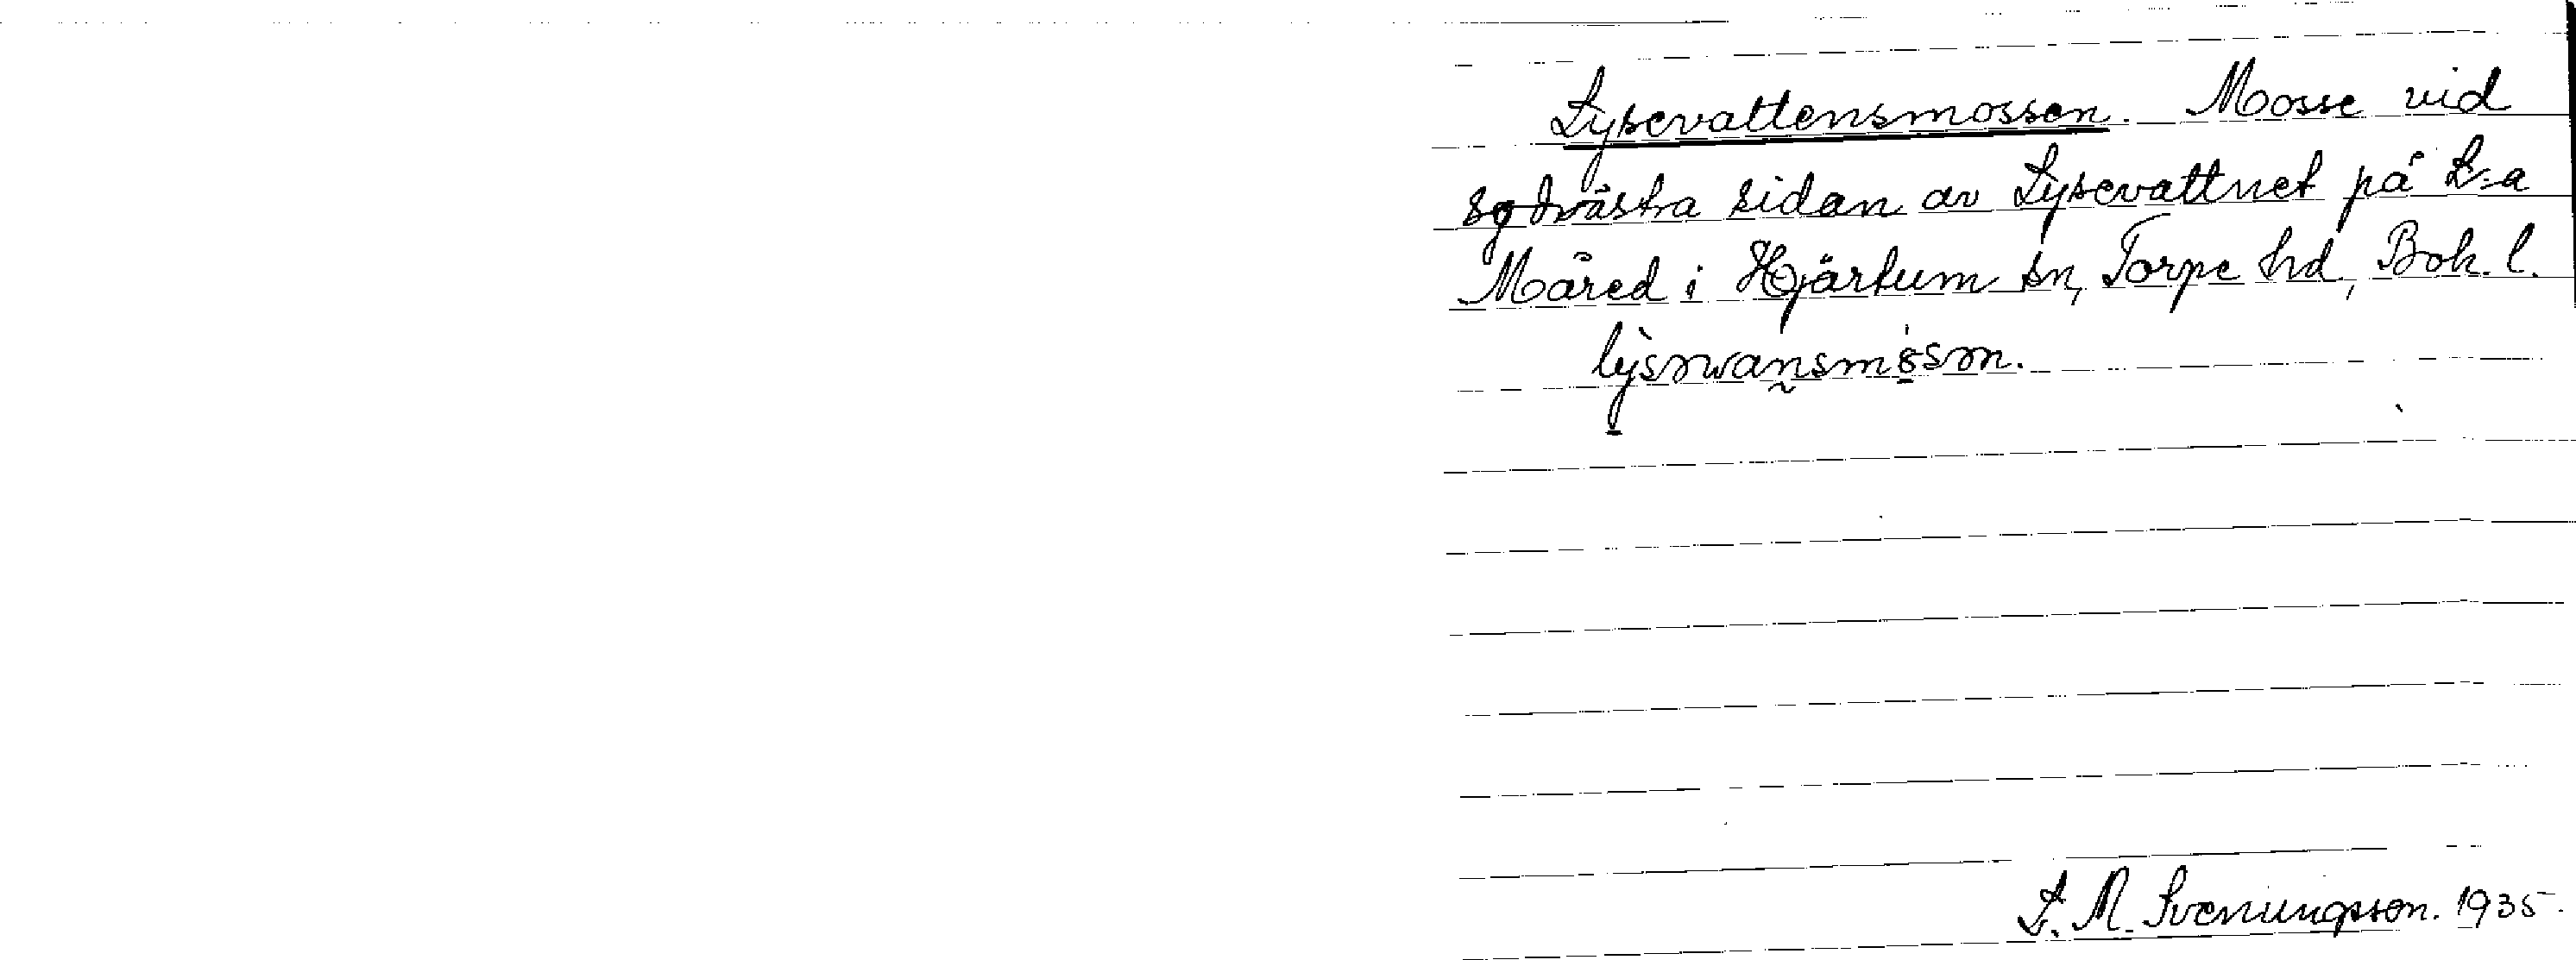 Lysevattensmossen. Mosse vid
sydvästra sidan av Lysevattnet på L:a
Måred i Hjärtum sn, Torpe hd, Boh. l.
S. M. Svenungsson. 1935.